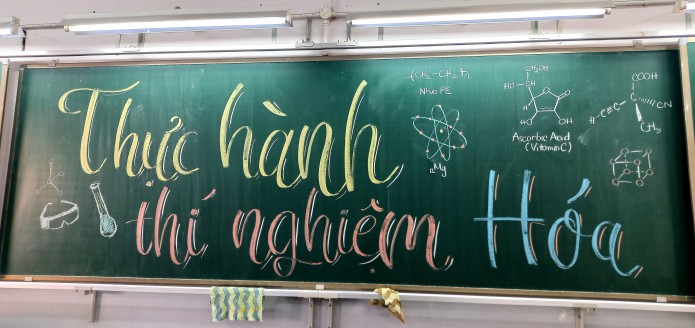 Thực hành
thí nghiệm Hóa
(CH₂-CH₂)n
Nhựa PE
Mg
CH₂OH
HO
CH
O
O
HO
OH
Ascorbic Acid
(Vitamin C)
COOH
H-C≡C-C
CN
CH₃